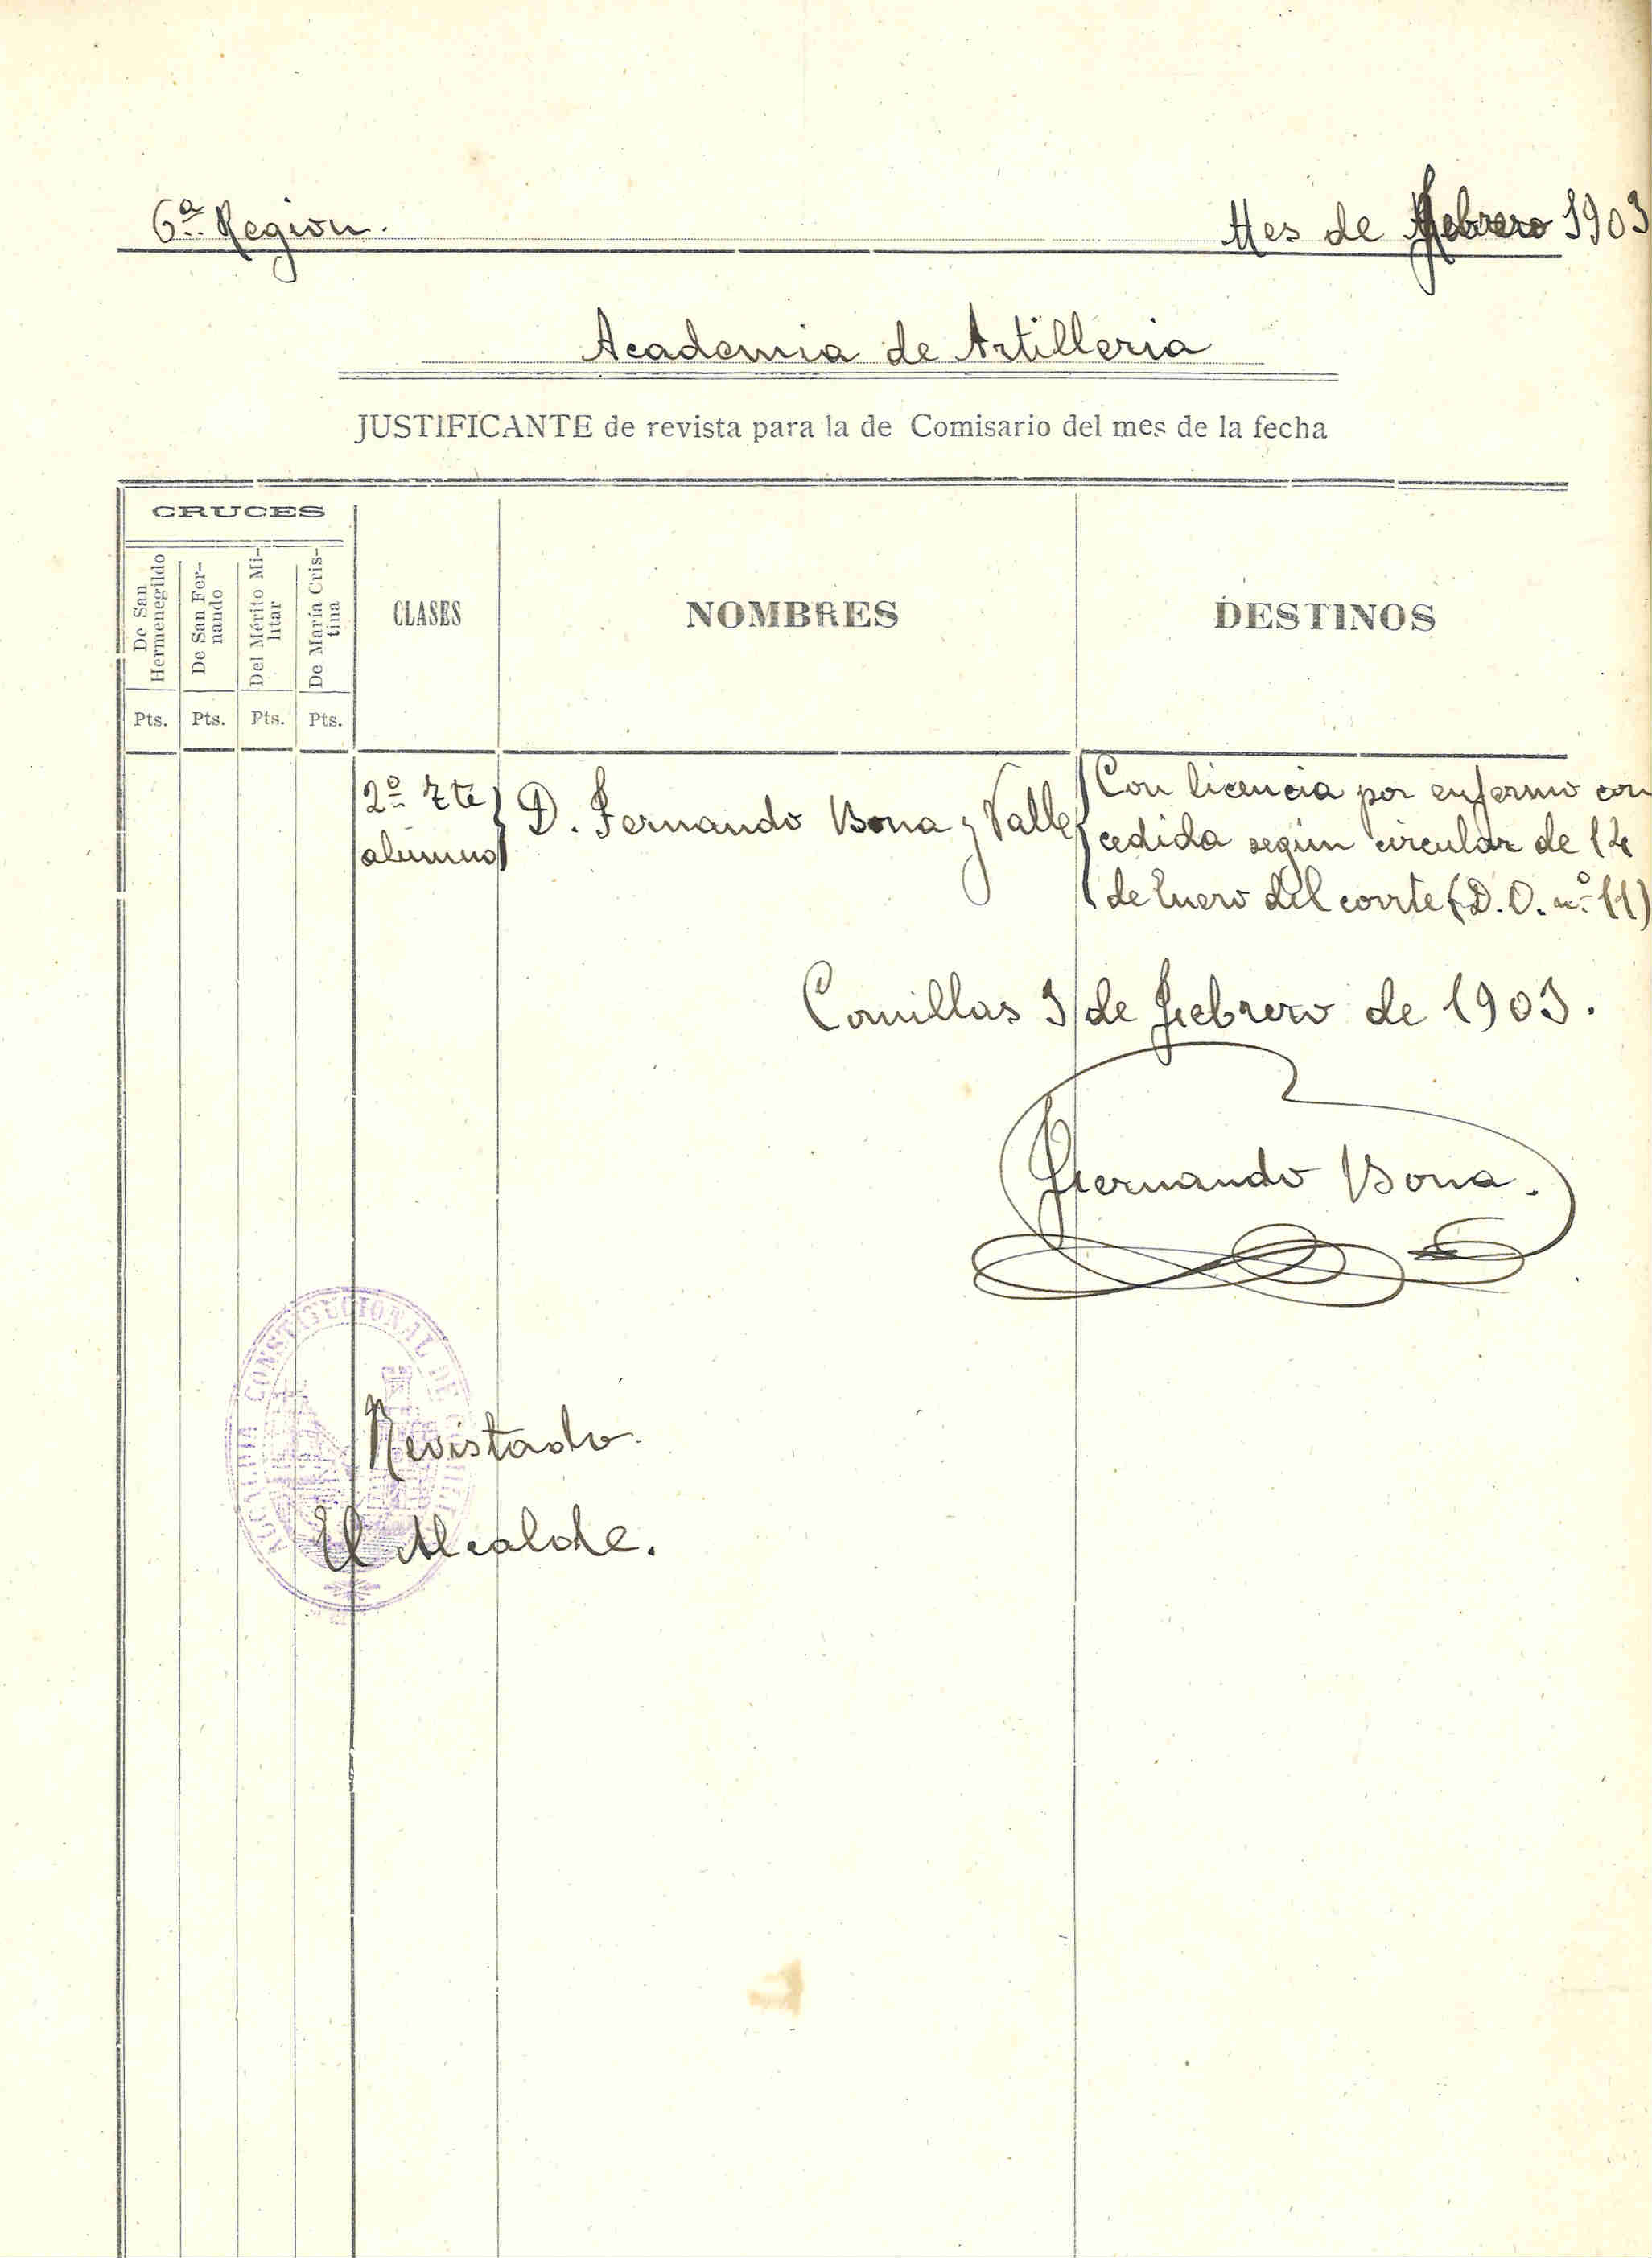 6ª Region.
Mes de Febrero 1903
Academia de Artilleria
JUSTIFICANTE de revista para la de Comisario del mes de la fecha
CRUCES
De San Hermenegildo
De San Fer-
nando
Del Mérito Mi-
litar
De María Cris-
tina
CLASES
NOMBRES
DESTINOS
Pts. Pts. Pts. Pts.
2º Tte
alumno
D. Fernando Bona y Valle
Con licencia por enfermo con
cedida según circular de 14
de Enero del corrte (D.O. nº 11)
Comillas 3 de Febrero de 1903.
Fernando Bona.
ALCALDIA CONSTITUCIONAL DE
Revistado
El Alcalde.